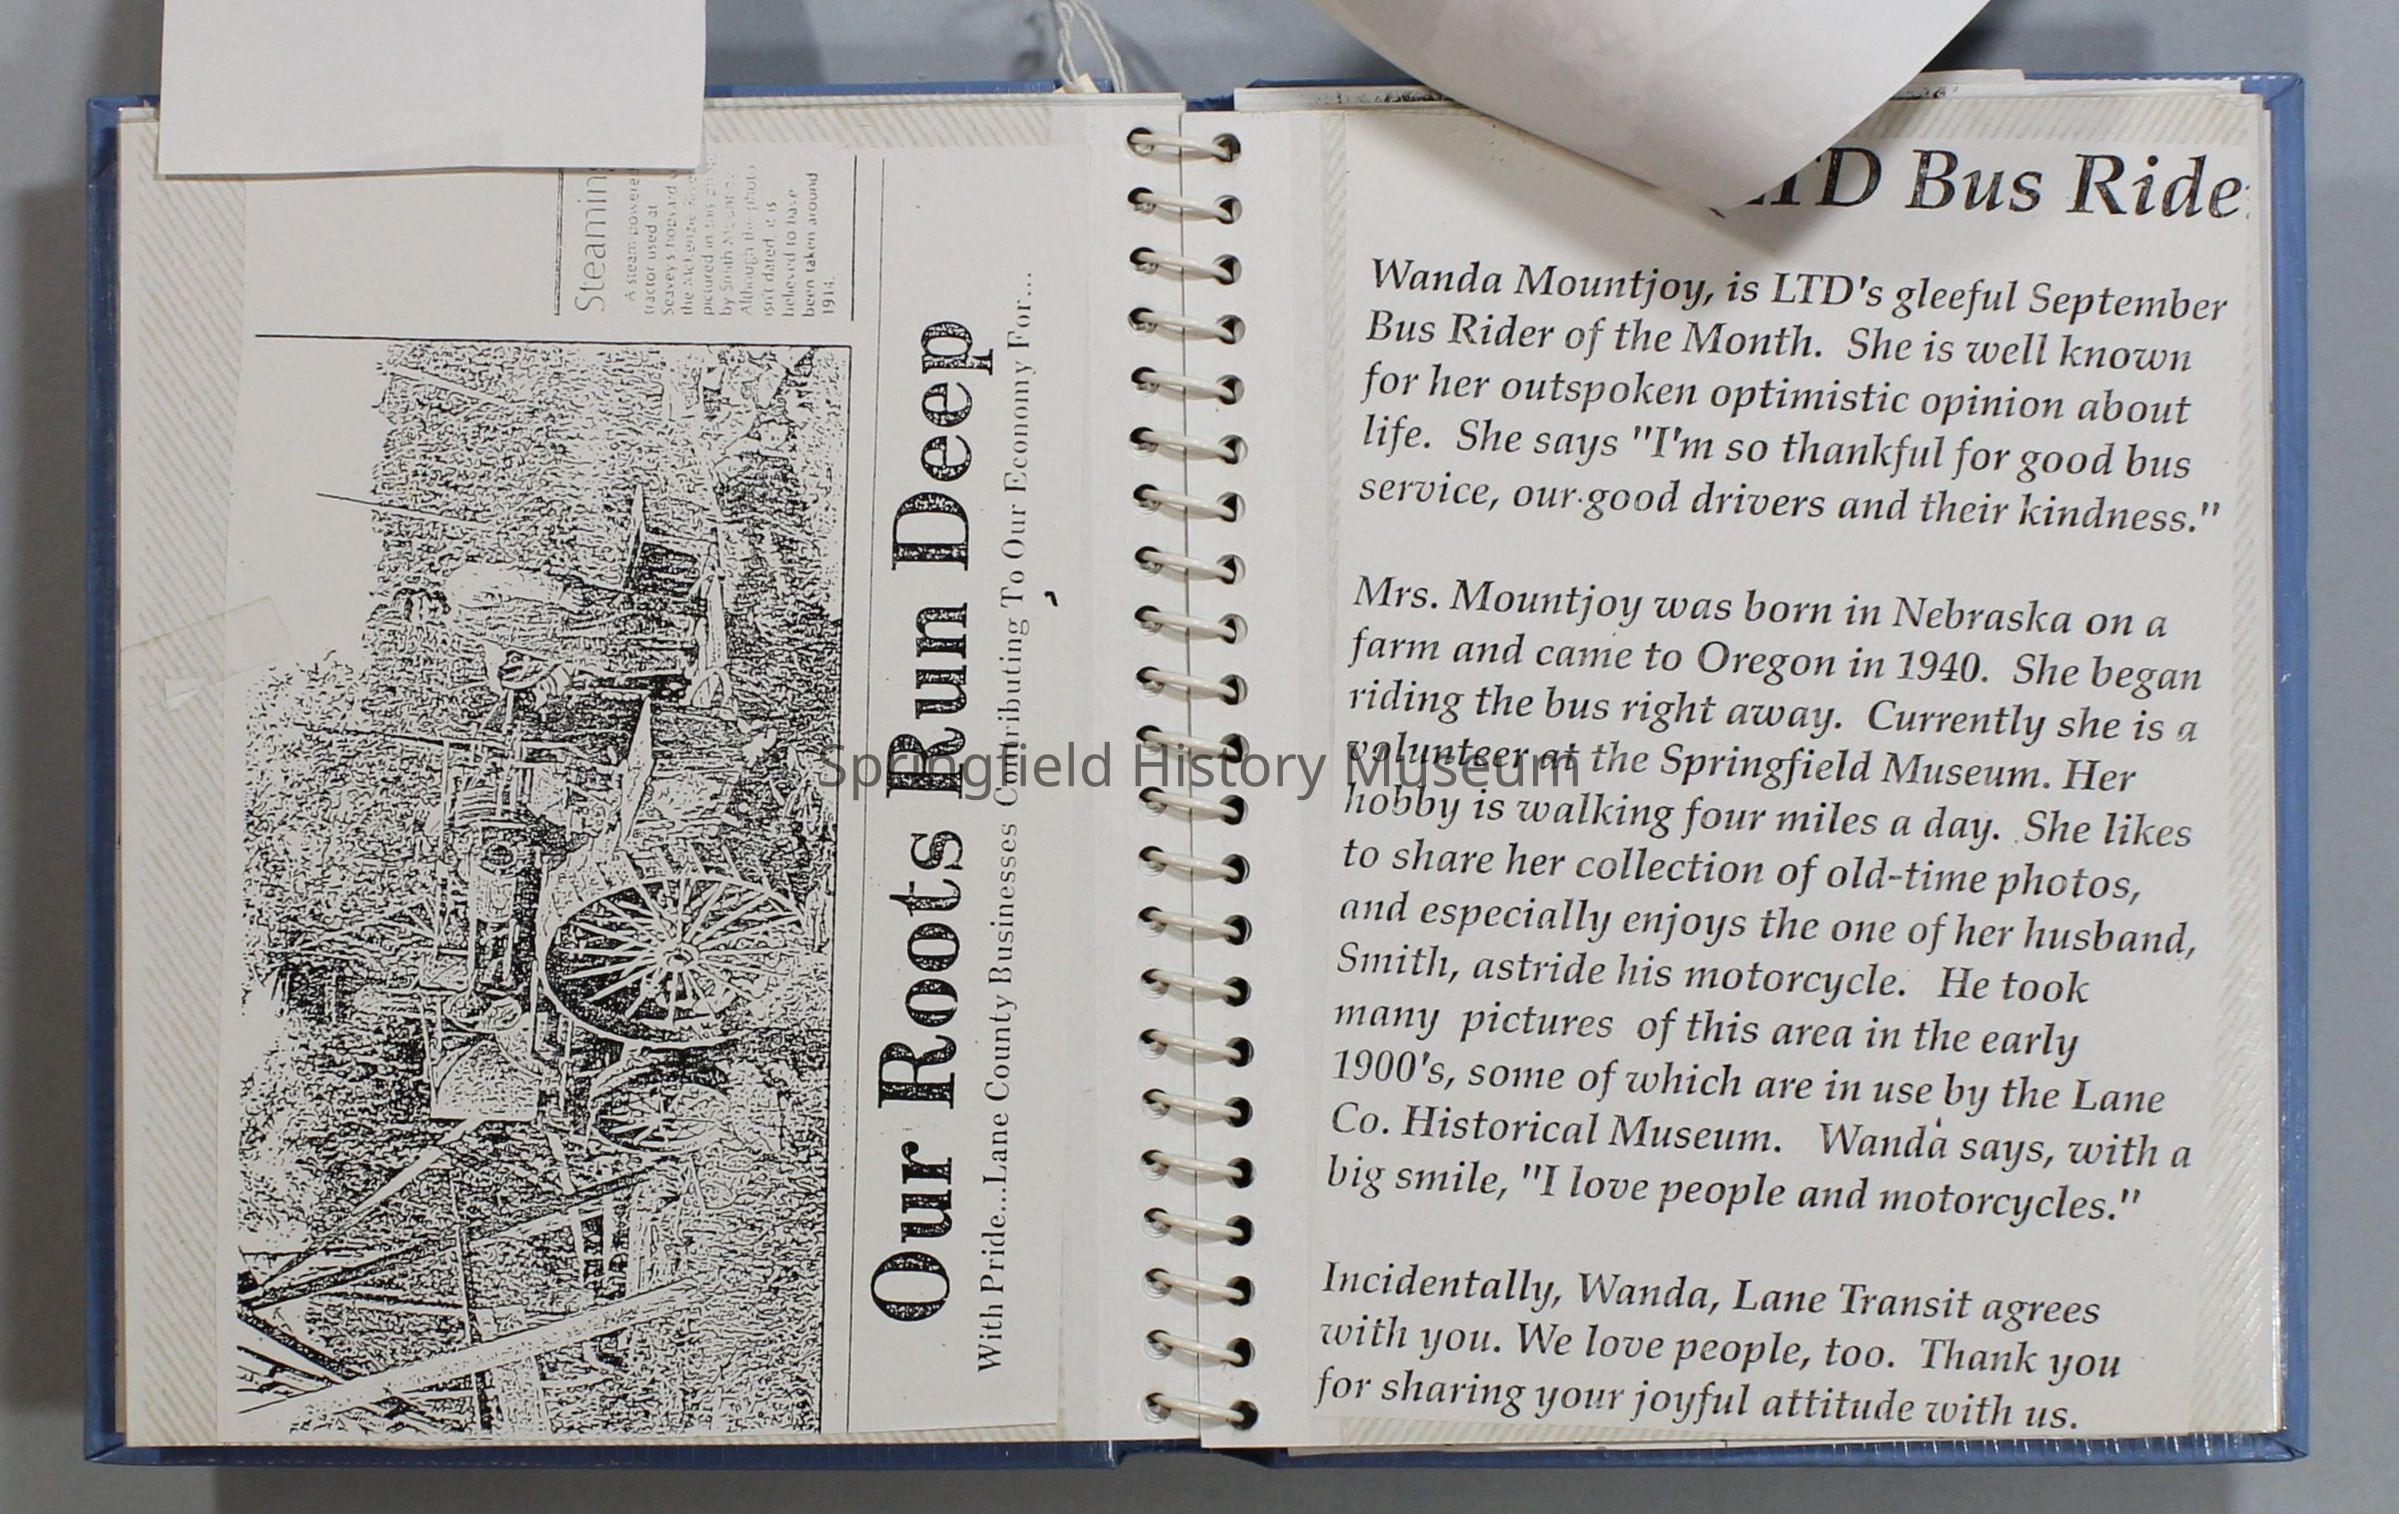 Steaming
A steam powered
tractor used at
Seavey's hopyard
the McKenzie
pictured in this
by Smith Mountjoy.
Although the photo
isn't dated, it is
believed to have
been taken around
1914.
Our Roots Run Deep
With Pride...Lane County Businesses Contributing To Our Economy For...
LTD Bus Ride
Wanda Mountjoy, is LTD's gleeful September
Bus Rider of the Month. She is well known
for her outspoken optimistic opinion about
life. She says "I'm so thankful for good bus
service, our good drivers and their kindness."
Mrs. Mountjoy was born in Nebraska on a
farm and came to Oregon in 1940. She began
riding the bus right away. Currently she is a
volunteer at the Springfield Museum. Her
hobby is walking four miles a day. She likes
to share her collection of old-time photos,
and especially enjoys the one of her husband,
Smith, astride his motorcycle. He took
many pictures of this area in the early
1900's, some of which are in use by the Lane
Co. Historical Museum. Wanda says, with a
big smile, "I love people and motorcycles."
Incidentally, Wanda, Lane Transit agrees
with you. We love people, too. Thank you
for sharing your joyful attitude with us.
Springfield History Museum